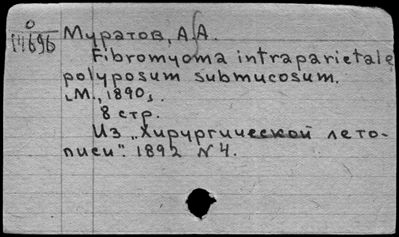 О
14696
Муратов, А.А.
Fibromyoma intraparietale
polyposum submucosum.
[М., 1890].
8 стр.
Из „Хирургической лето-
писи". 1892 N 4.